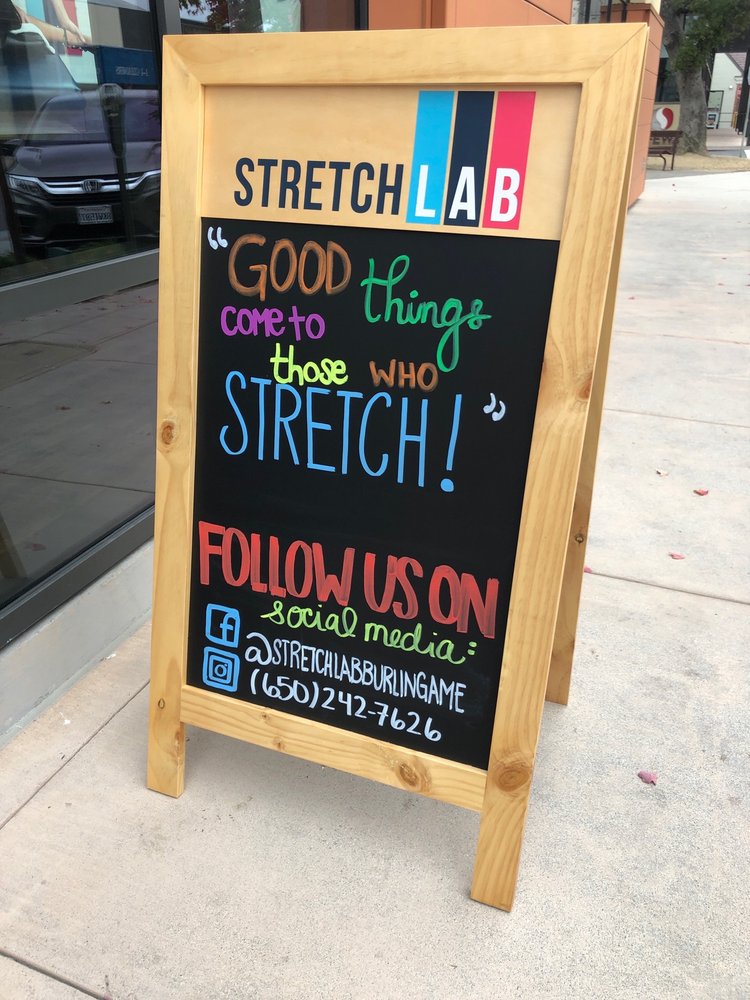 STRETCH LAB
“GOOD things
come to
those WHO
STRETCH!”
FOLLOW US ON
social media:
@STRETCHLABBURLINGAME
(650)242-7626